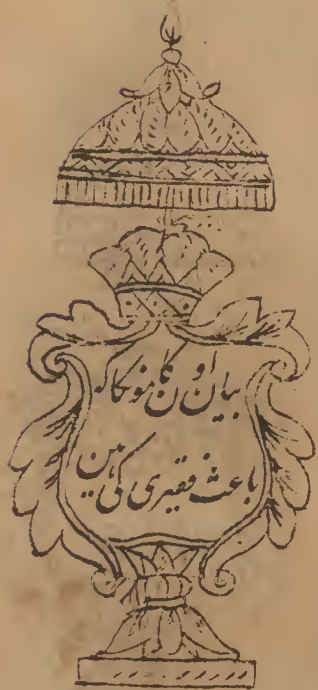 بیان اون کامونکا کہ
باعث فقیری کی ہین